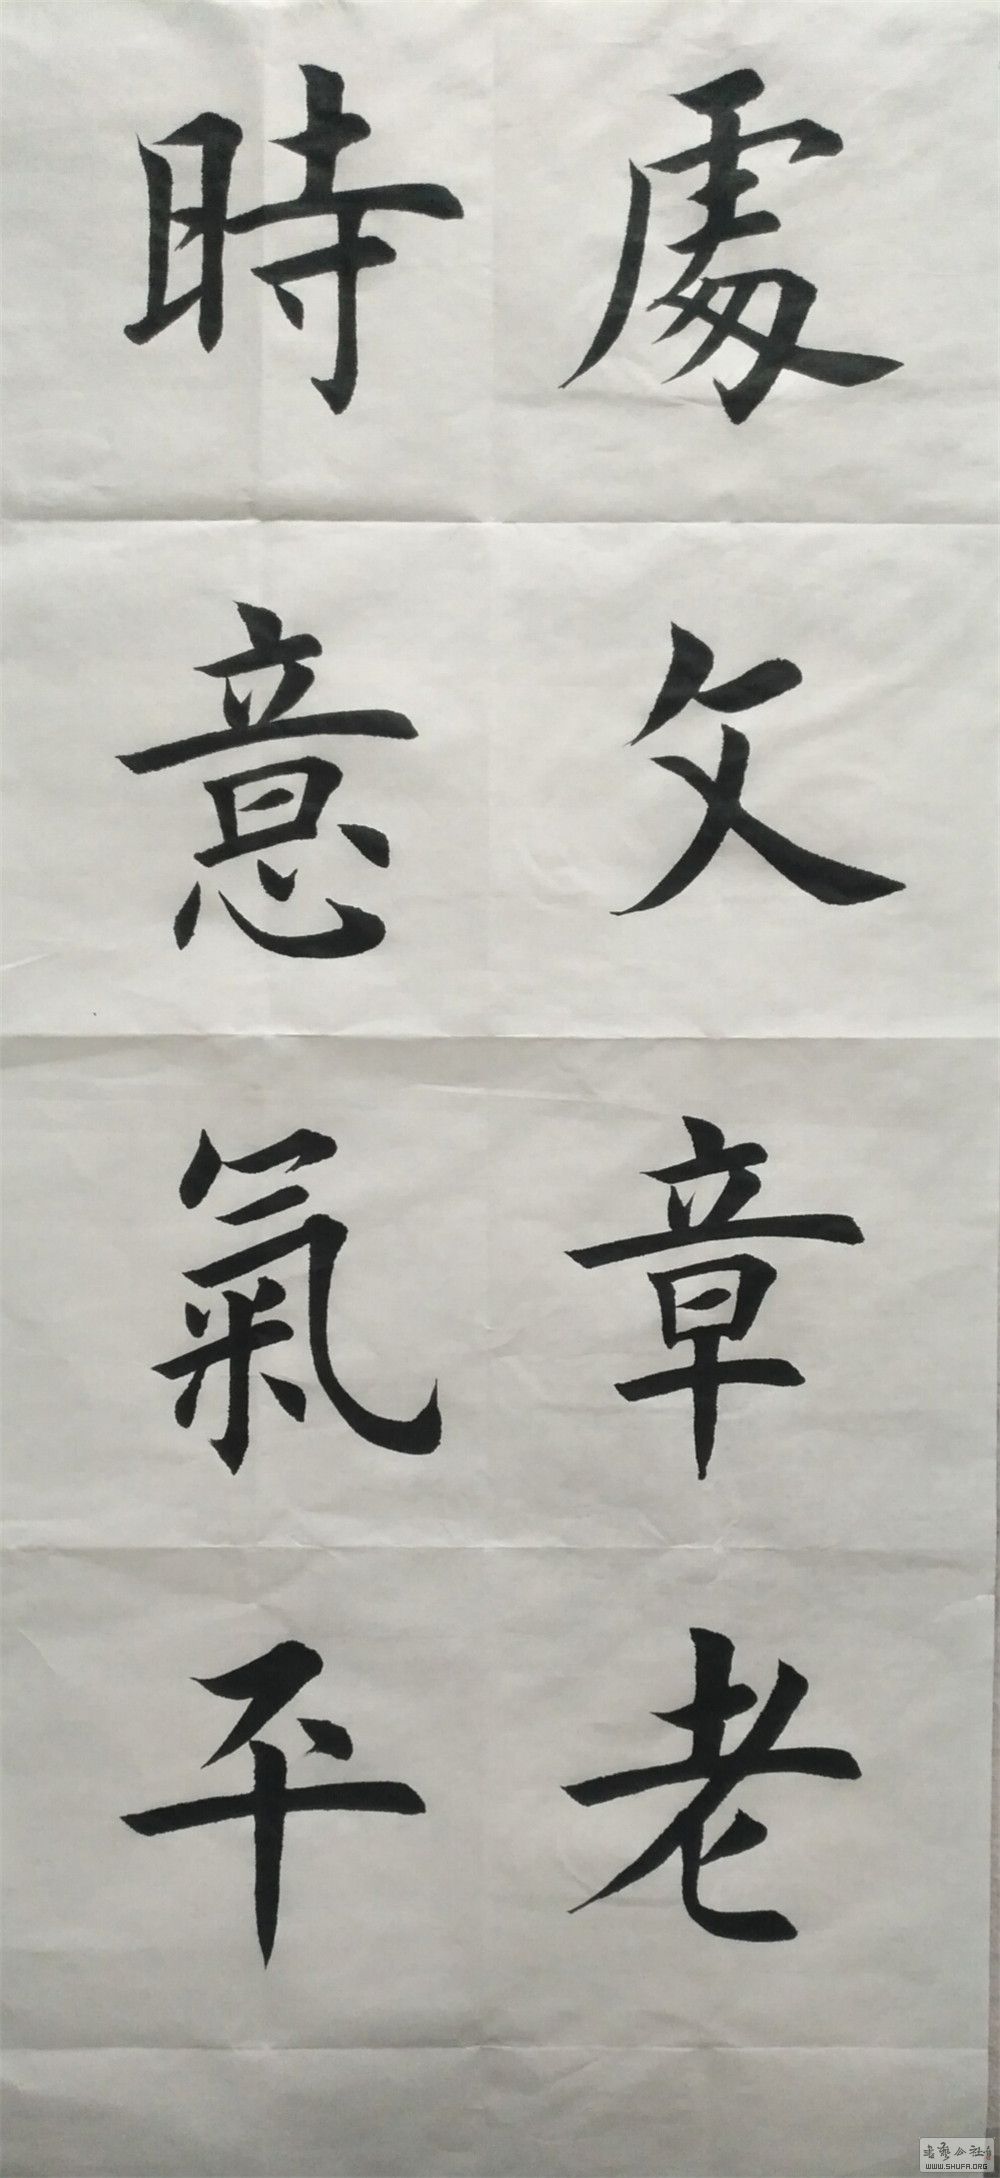 處文章老
時意氣平
書藝公社
WWW.SHUFA.ORG